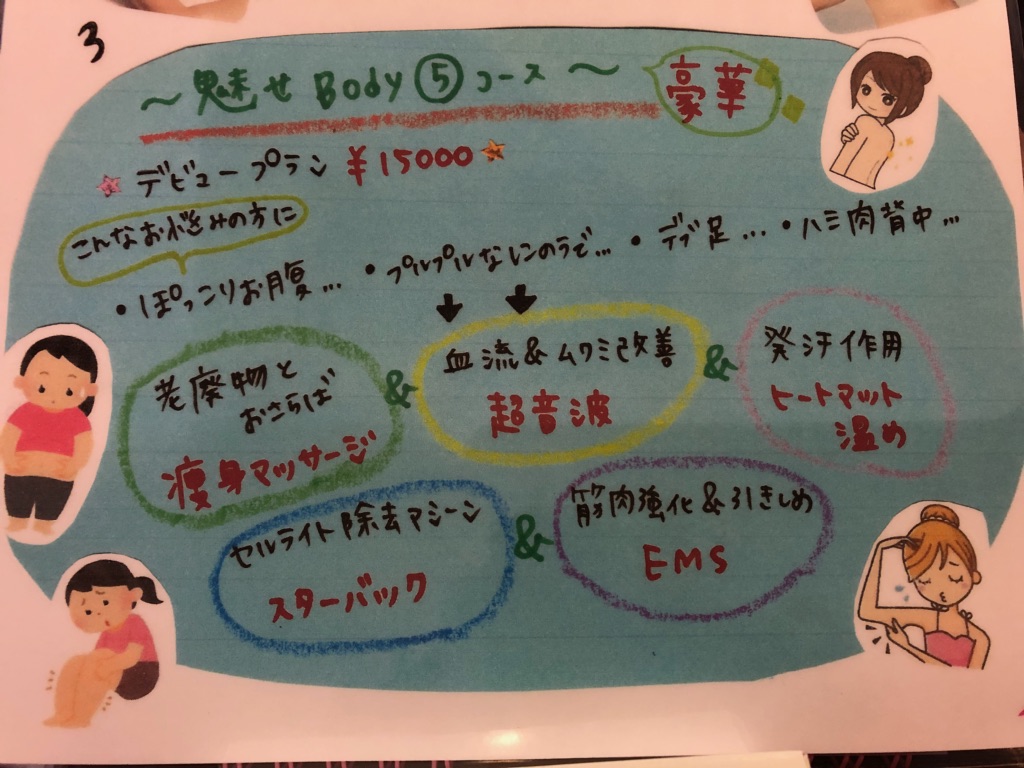 3
～魅せBody⑤コース～
豪華
デビュープラン ¥15000
こんなお悩みの方に
・ぽっこりお腹… ・プルプルなにのうで… ・デブ足… ・ハミ肉背中…
老廃物と
おさらば
痩身マッサージ
&
血流&ムクミ改善
超音波
&
発汗作用
ヒートマット
温め
セルライト除去マシーン
スターバック
&
筋肉強化&引きしめ
EMS